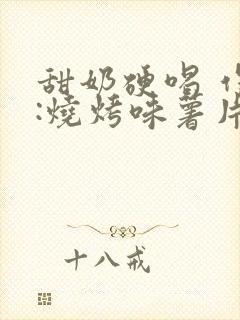 甜奶硬唱
:燒烤味薯片
十八戒